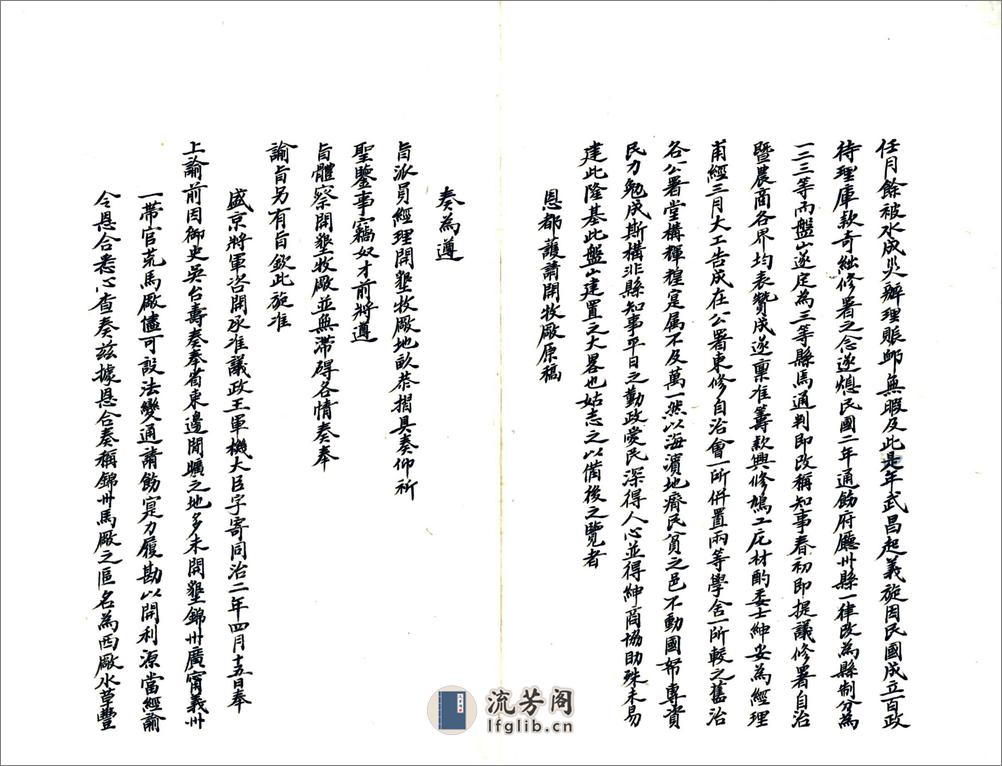 任月餘被水成災辦理賑邺無暇及此是年武昌起義旋因民國成立百政
待理庫款奇絀修署之念遂熄民國二年通飭府廳州縣一律改為縣制分為
一二三等而盤山遂定為三等縣馬通判即改稱知事春初即提議修署自治
暨農商各界均表贊成遂禀准籌款興修鳩工庀材酌委士紳妥為經理
甫經三月大工告成在公署東修自治會一所併置兩等學舍一所較之舊治
各公署堂構輝煌寔属不及萬一然以海濱地瘠民貧之邑不動國帑專資
民力勉成斯構非縣知事平日之勤政愛民深得人心並得紳商協助殊未易
建此隆基此盤山建置之大畧也姑志之以備後之覽者
恩都護請開牧廠原稿
奏為遵
旨派員經理開墾牧廠地畝恭摺具奏仰祈
聖鑒事竊奴才前將遵
旨體察開墾牧廠並無滯碍各情奏奉
諭旨另有旨欽此旋准
盛京將軍咨開承准議政王軍機大臣字寄同治二年四月十五日奉
上諭前因御史吳台壽奏奉省東邊閒曠之地多未開墾錦州廣甯義州
一帶官荒馬廠儘可設法變通請飭寔力履勘以開利源當經諭
令恩合悉心查奏兹據恩合奏稱錦州馬廠之區名為西廠水草豐
流芳阁
lfglib.cn